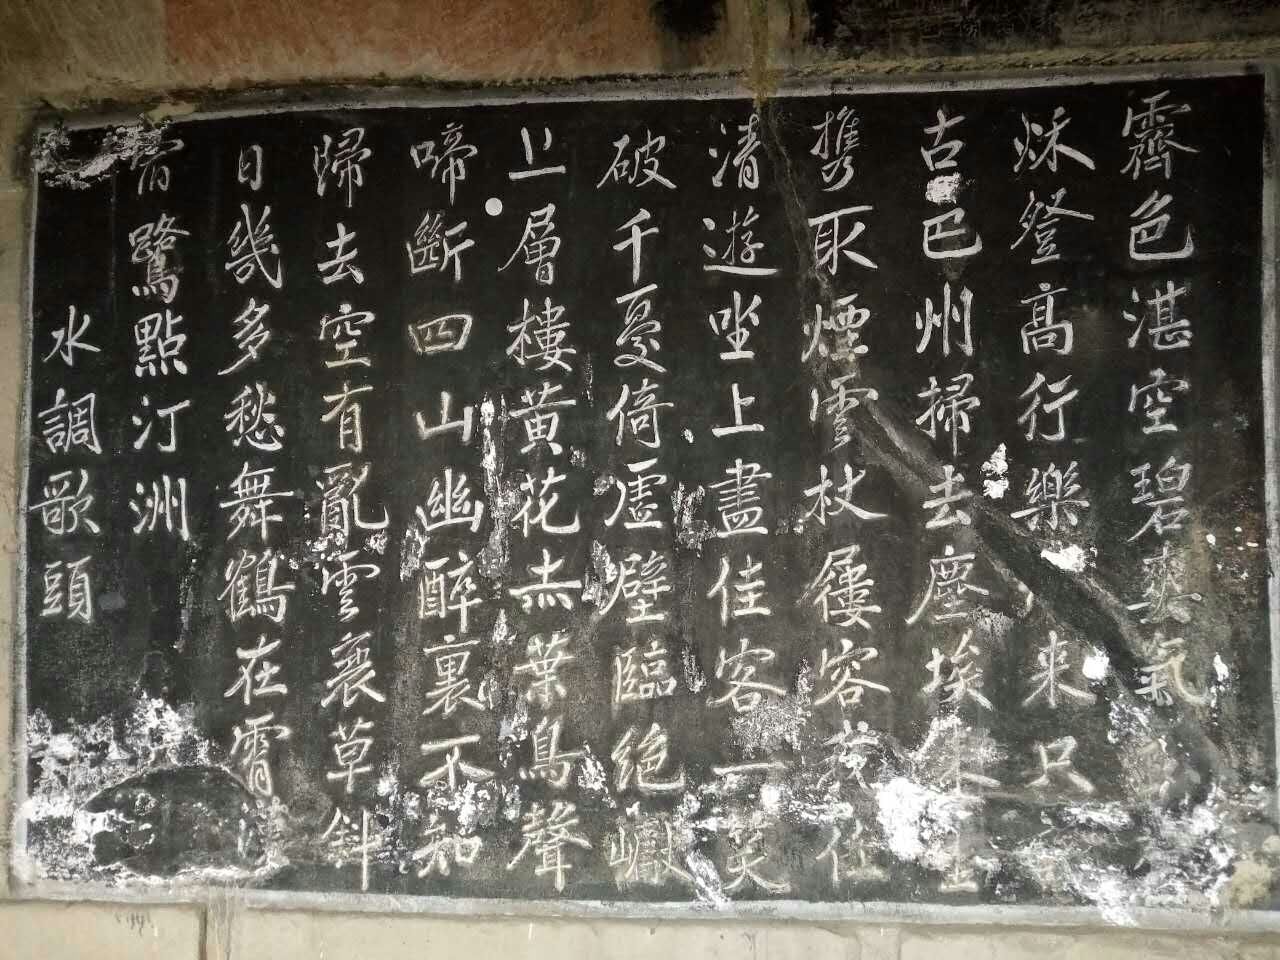 霽色湛空碧爽氣
秋登高行樂来只
古巴州掃去塵埃
携取煙雲杖屨容我任
清遊坐上盡佳客一笑
破千憂倚虛壁臨絶巘
上層樓黄花赤葉鳥聲
啼斷四山幽醉裏不知
歸去空有亂雲衰草斜
日幾多愁舞鶴在霄漢
宿鷺點汀洲
水調歌頭